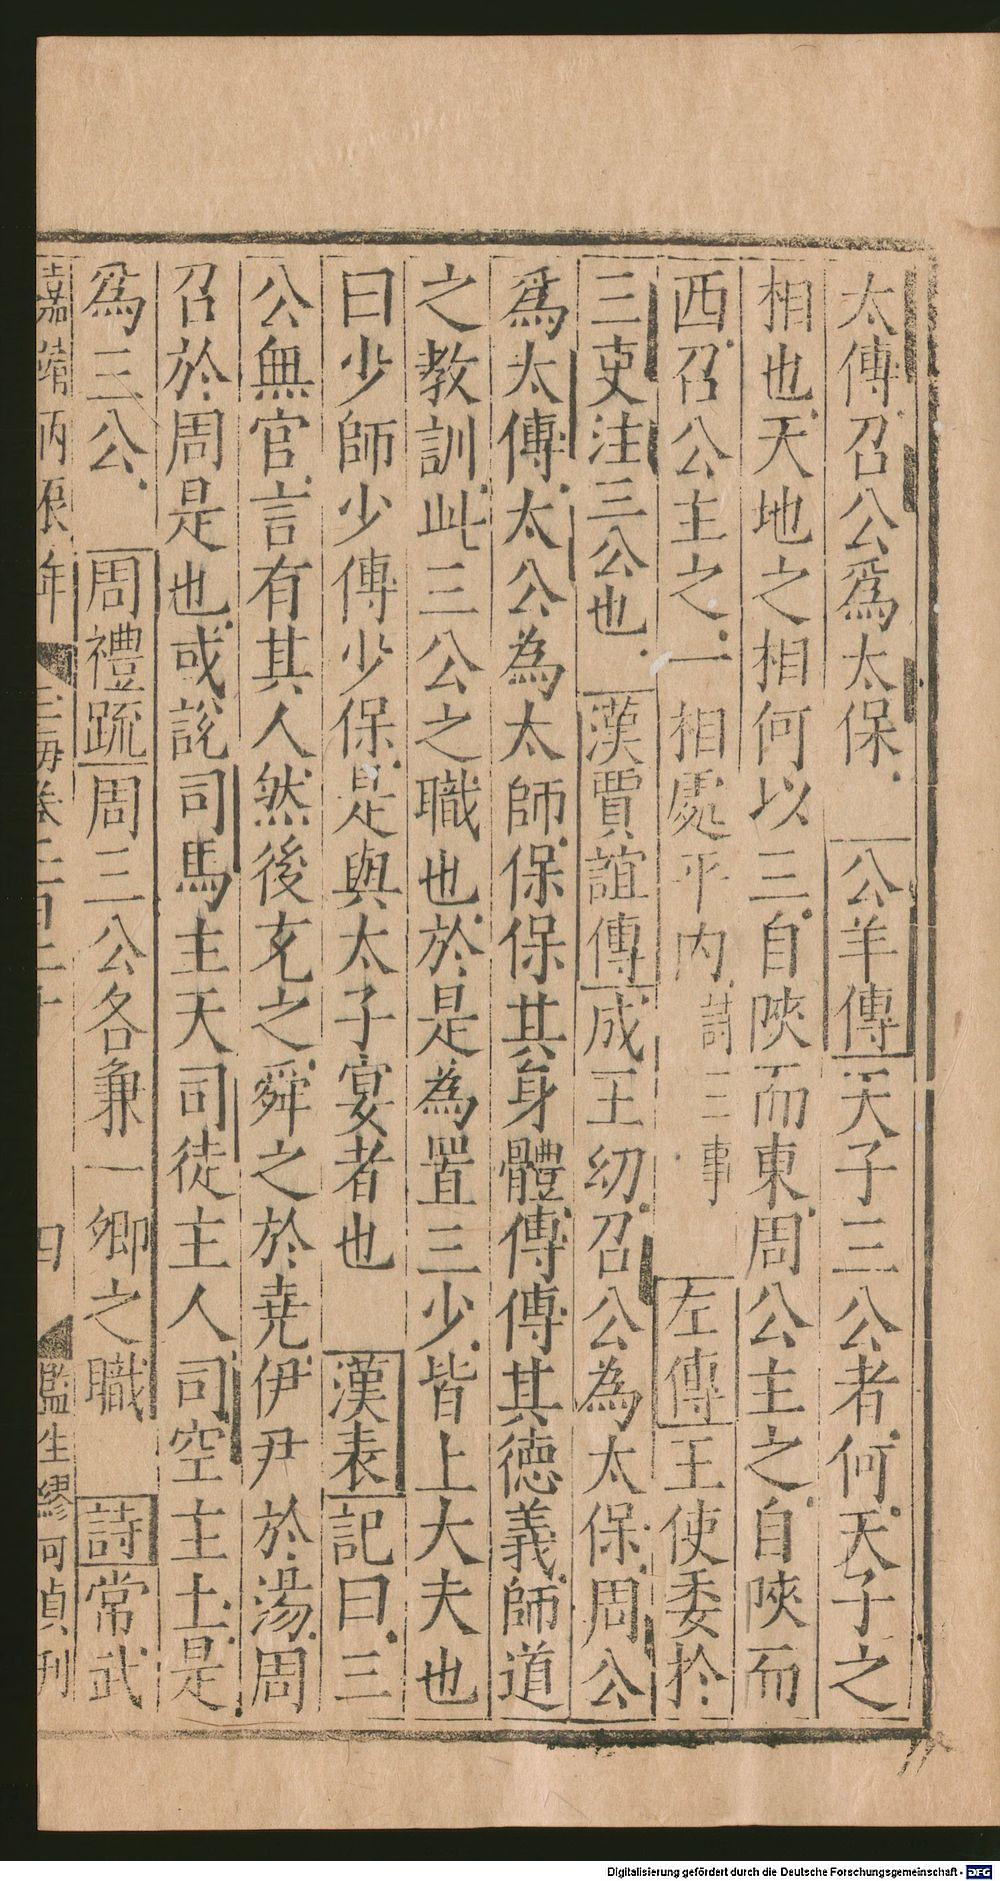 太傅召公爲太保 公羊傳天子三公者何天子之
相也天地之相何以三自陝而東周公主之自陝而
西召公主之一相處乎内詩三事 左傳王使委於
三吏注三公也 漢賈誼傳成王幼召公為太保周公
爲太傅太公為太師保保其身體傅傅其德義師道
之教訓此三公之職也於是為置三少皆上大夫也
曰少師少傅少保是與太子宴者也 漢表記曰三
公無官言有其人然後充之舜之於堯伊尹於湯周
召於周是也或說司馬主天司徒主人司空主土是
為三公 周禮疏周三公各兼一卿之職 詩常武
嘉靖丙辰年 玉海卷一百二十 四 監生繆可貞刊
Digitalisierung gefördert durch die Deutsche Forschungsgemeinschaft - DFG